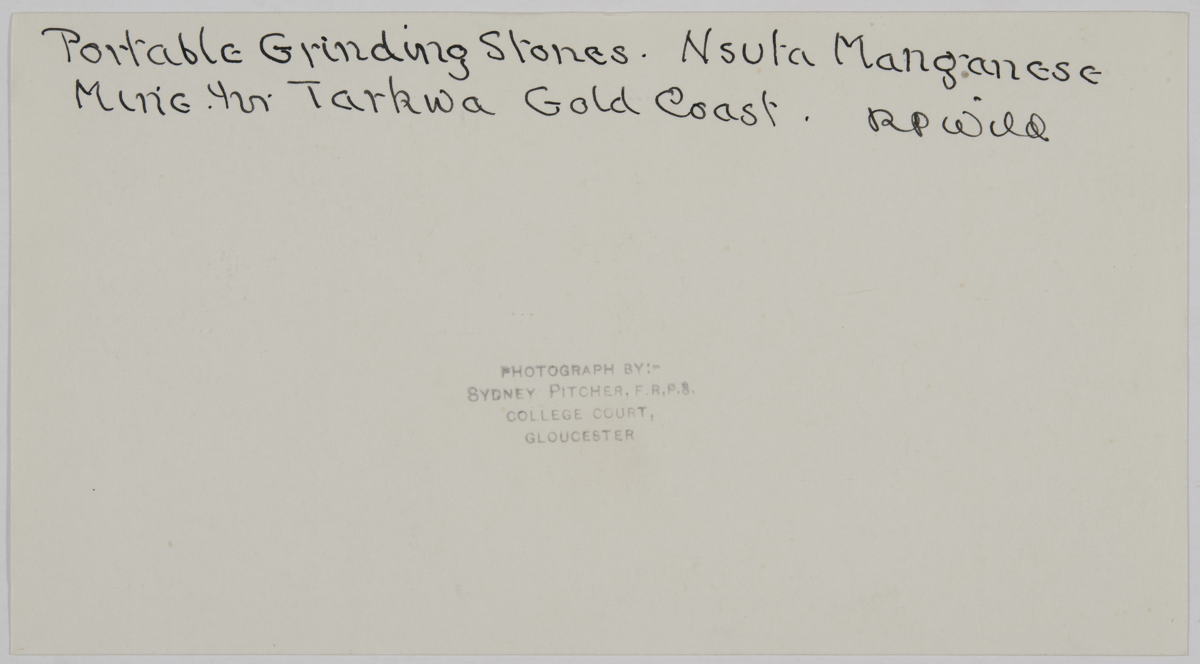 Portable Grinding Stones. Nsuta Manganese
Mine. nr Tarkwa Gold Coast. RP Wild
PHOTOGRAPH BY:-
SYDNEY PITCHER, F.R.P.S.
COLLEGE COURT,
GLOUCESTER